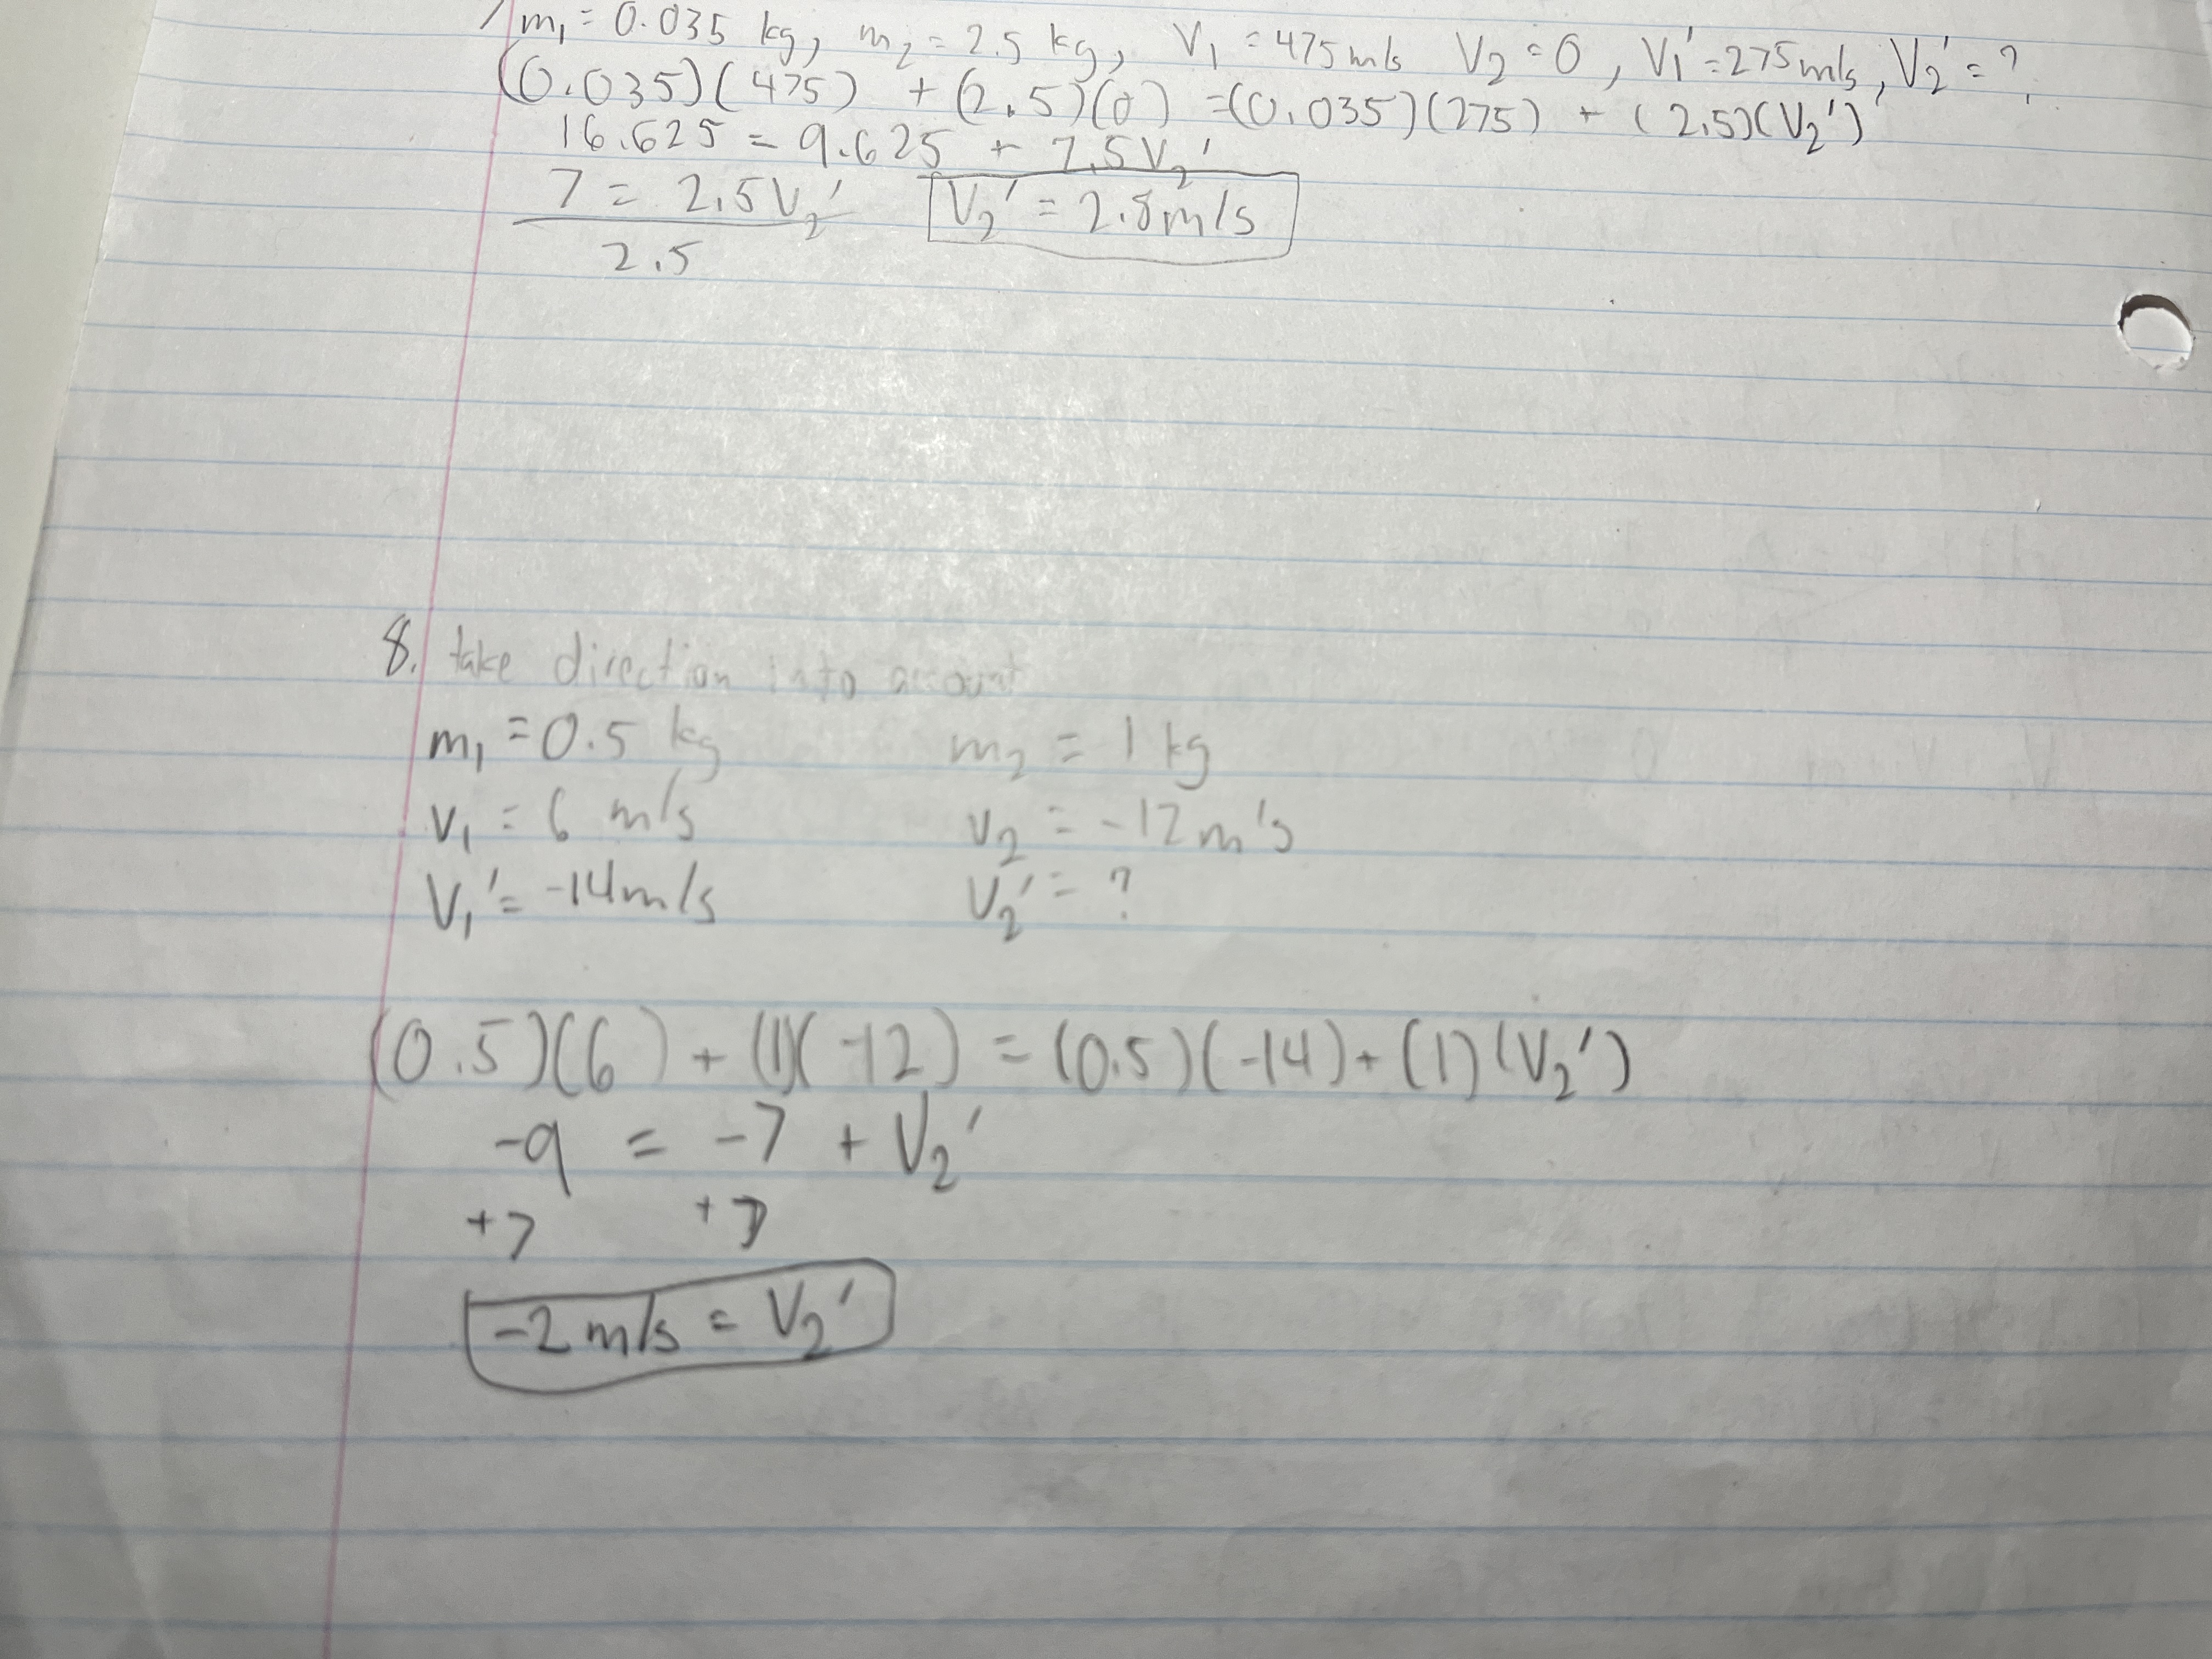 m₁ = 0.035 kg, m₂ = 2.5 kg, V₁ = 475 m/s V₂ = 0, V₁' = 275 m/s, V₂' = ?
(0.035)(475) + (2.5)(0) = (0.035)(275) + (2.5)(V₂')
16.625 = 9.625 + 2.5V₂'
7 = 2.5V₂' V₂' = 2.8m/s
2.5
8. take direction into account
m₁ = 0.5 kg m₂ = 1 kg
V₁ = 6 m/s V₂ = -12 m/s
V₁' = -14m/s V₂' = ?
(0.5)(6) + (1)(-12) = (0.5)(-14) + (1)(V₂')
-9 = -7 + V₂'
+7 +7
-2 m/s = V₂'